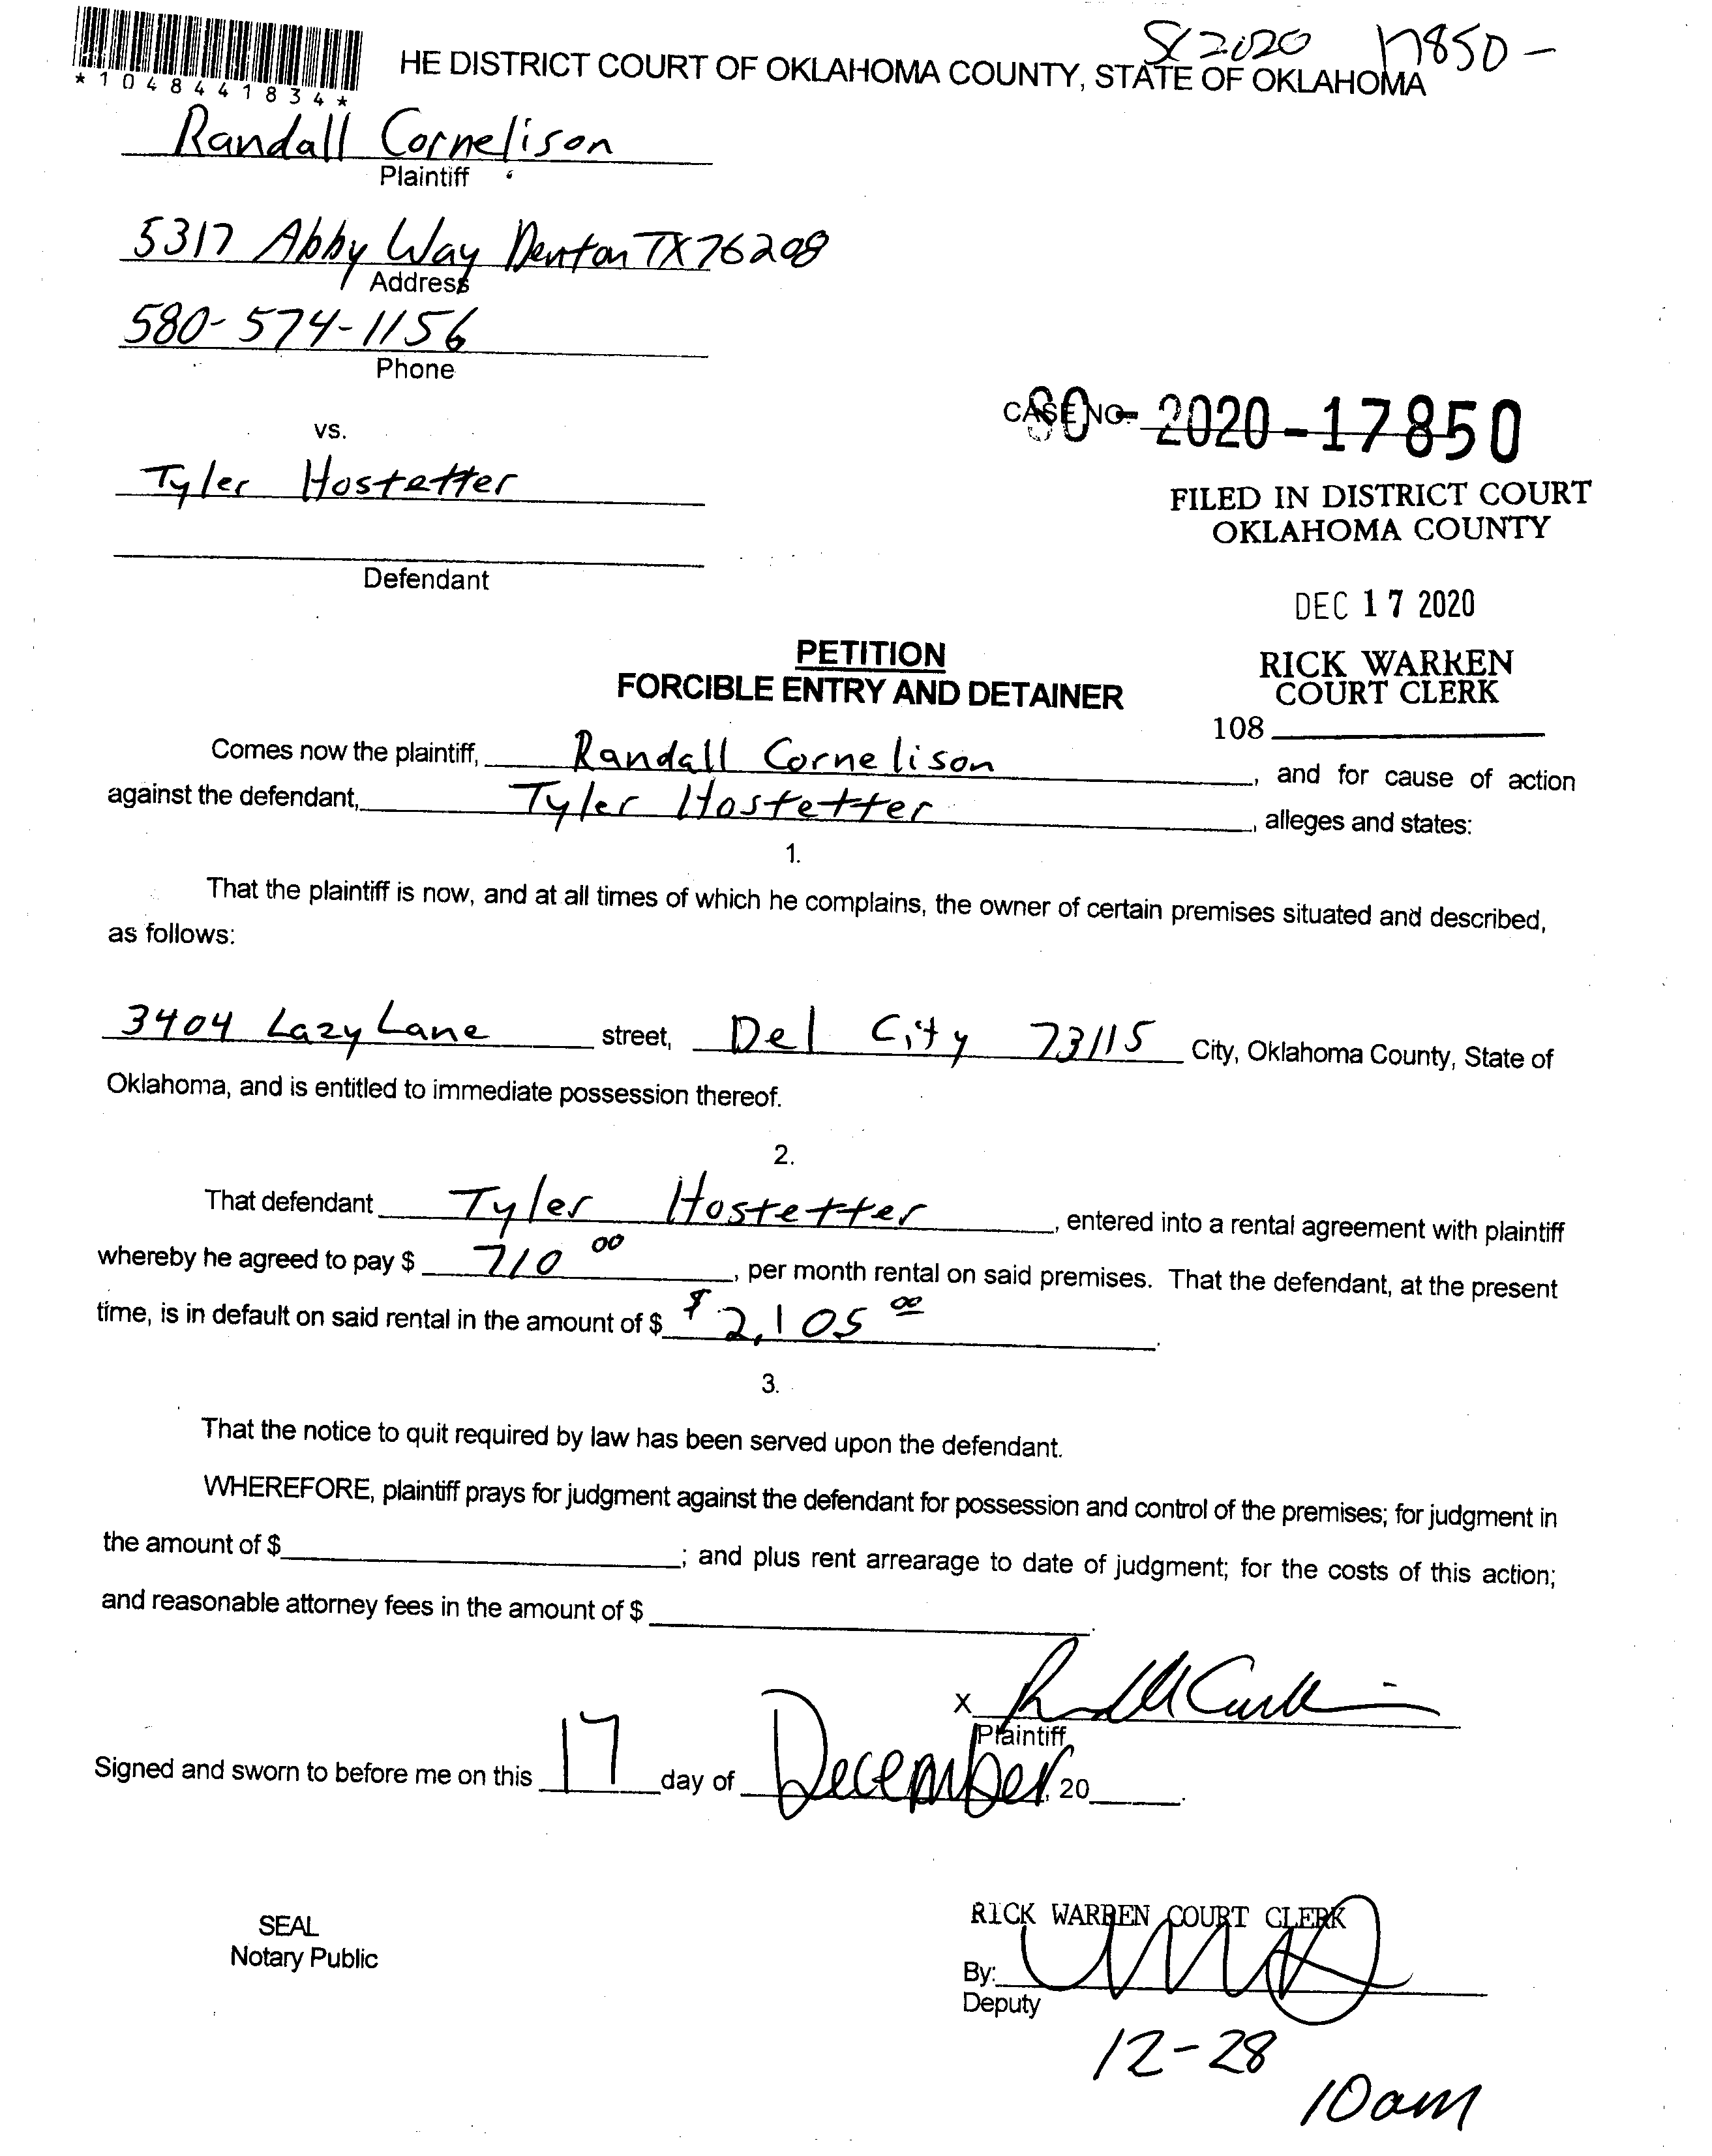 SC2020 17850-
HE DISTRICT COURT OF OKLAHOMA COUNTY, STATE OF OKLAHOMA
*1048441834*
Randall Cornelison
Plaintiff
5317 Abby Way Denton TX 76208
Address
580-574-1156
Phone
CASE NO. 2020-17850
vs.
Tyler Hostetter
FILED IN DISTRICT COURT
OKLAHOMA COUNTY
Defendant
DEC 17 2020
PETITION
FORCIBLE ENTRY AND DETAINER
RICK WARREN
COURT CLERK
108
Comes now the plaintiff, Randall Cornelison, and for cause of action
against the defendant, Tyler Hostetter, alleges and states:
1.
That the plaintiff is now, and at all times of which he complains, the owner of certain premises situated and described,
as follows:
3404 Lazy Lane street, Del City 73115 City, Oklahoma County, State of
Oklahoma, and is entitled to immediate possession thereof.
2.
That defendant Tyler Hostetter, entered into a rental agreement with plaintiff
whereby he agreed to pay $ 710 00, per month rental on said premises. That the defendant, at the present
time, is in default on said rental in the amount of $ $ 2,105 00.
3.
That the notice to quit required by law has been served upon the defendant.
WHEREFORE, plaintiff prays for judgment against the defendant for possession and control of the premises; for judgment in
the amount of $; and plus rent arrearage to date of judgment; for the costs of this action;
and reasonable attorney fees in the amount of $.
X
Plaintiff
Signed and sworn to before me on this 17 day of December, 20.
SEAL
Notary Public
RICK WARREN COURT CLERK
By:
Deputy
12-28
10am